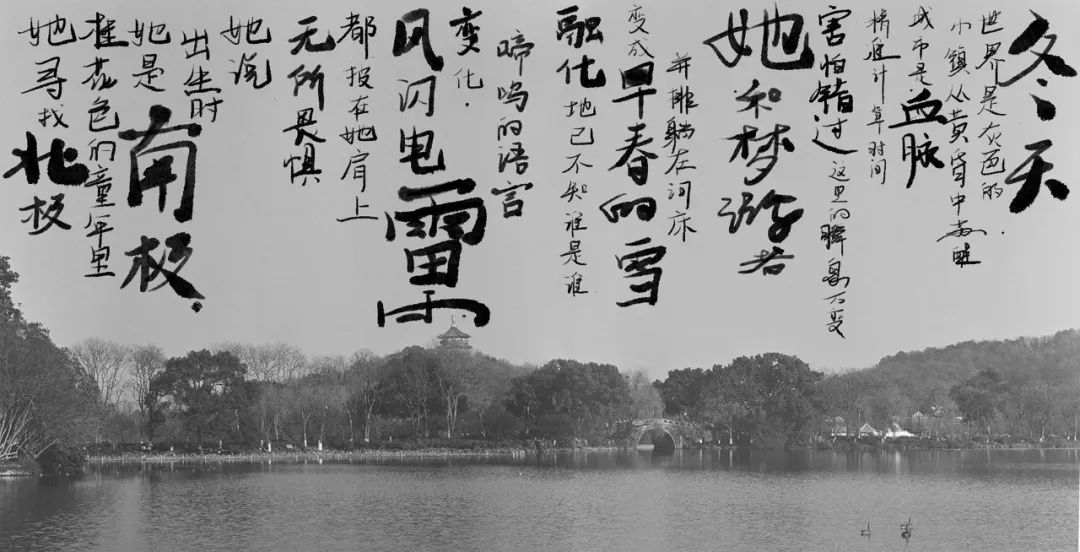 冬天
世界是灰色的
小镇从黄昏中苏醒.
城市是血脉
精准计算时间
害怕错过这里的瞬息万变
她和梦游者
并排躺在河床
变成早春的雪
融化地已不知谁是谁
啼鸣的语言
变化.
风闪电雷雨
都投在她肩上
无所畏惧
她说
出生时
她是南极.
桂花色的童年里
她寻找北极